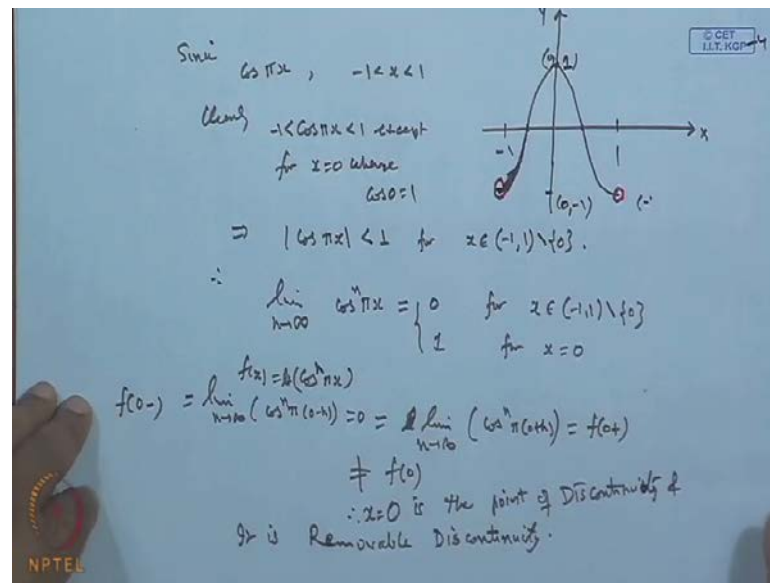 Y
© CET
I.I.T. KGP
Since cos πx , -1<x<1
(0,1)
Clearly -1<cos πx<1 except
for x=0 where
cos 0=1
-1
1
X
(0,-1)
(-
⇒ |cos πx| < 1 for x∈(-1,1)\{0}.
∴ lim n→∞ cosⁿπx = { 0 for x∈(-1,1)\{0}
1 for x=0
f(x)= (cosⁿπx)
f(0-) = lim n→∞ (cosⁿπ(0-h)) =0 = lim n→∞ (cosⁿπ(0+h)) = f(0+)
≠ f(0)
∴ x=0 is the point of Discontinuity &
It is Removable Discontinuity.
NPTEL